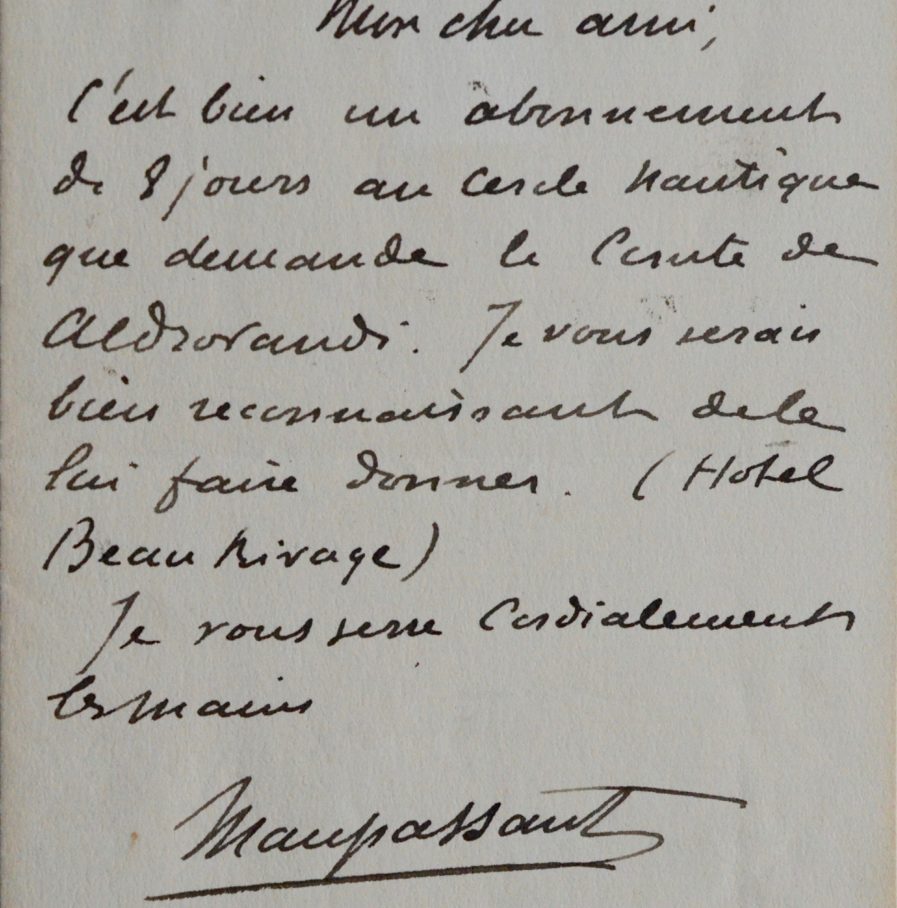 Mon cher ami,
C'est bien un abonnement
de 8 jours au Cercle Nautique
que demande le Comte de
Aldrovandi. Je vous serais
bien reconnaissant de le
lui faire donner. (Hotel
Beau Rivage)
Je vous serre Cordialement
les mains
Maupassant